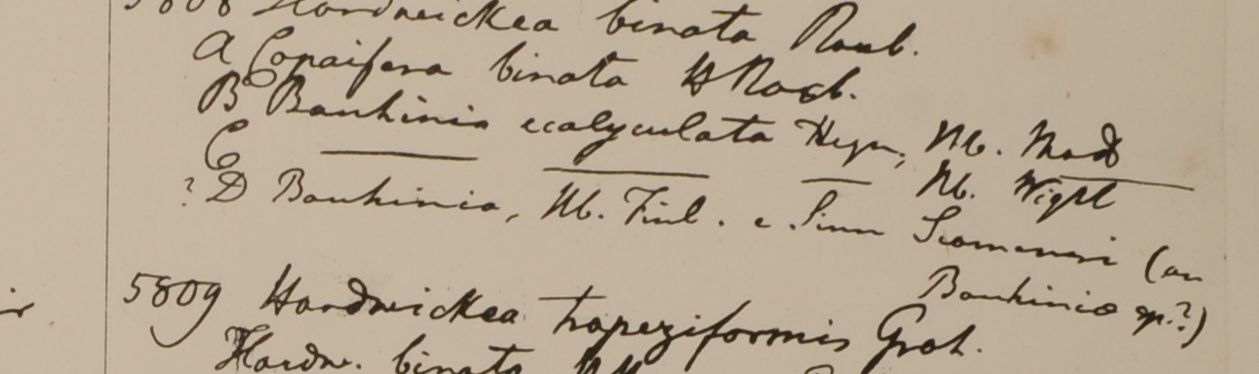 5808 Hardwickea binata Roxb.
A Copaifera binata H Roxb.
B Bauhinia ecalyculata Heyn, Hb. Mad
C ——— ——— —— Hb. Wight
? D Bauhinia, Hb. Finl. e Sinu Siamensi (an
Bauhiniæ sp.?)
5809 Hardwickea trapeziformis Grah.
Hardw. binata